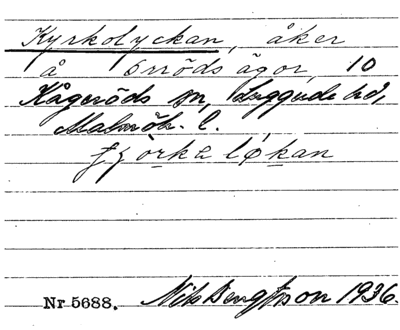 Kyrkolyckan, åker
å Örröds ägor, 10
Kågeröds sn, Luggude hd,
Malmöh. l.
Nr 5688. Nils Bengtsson 1936.